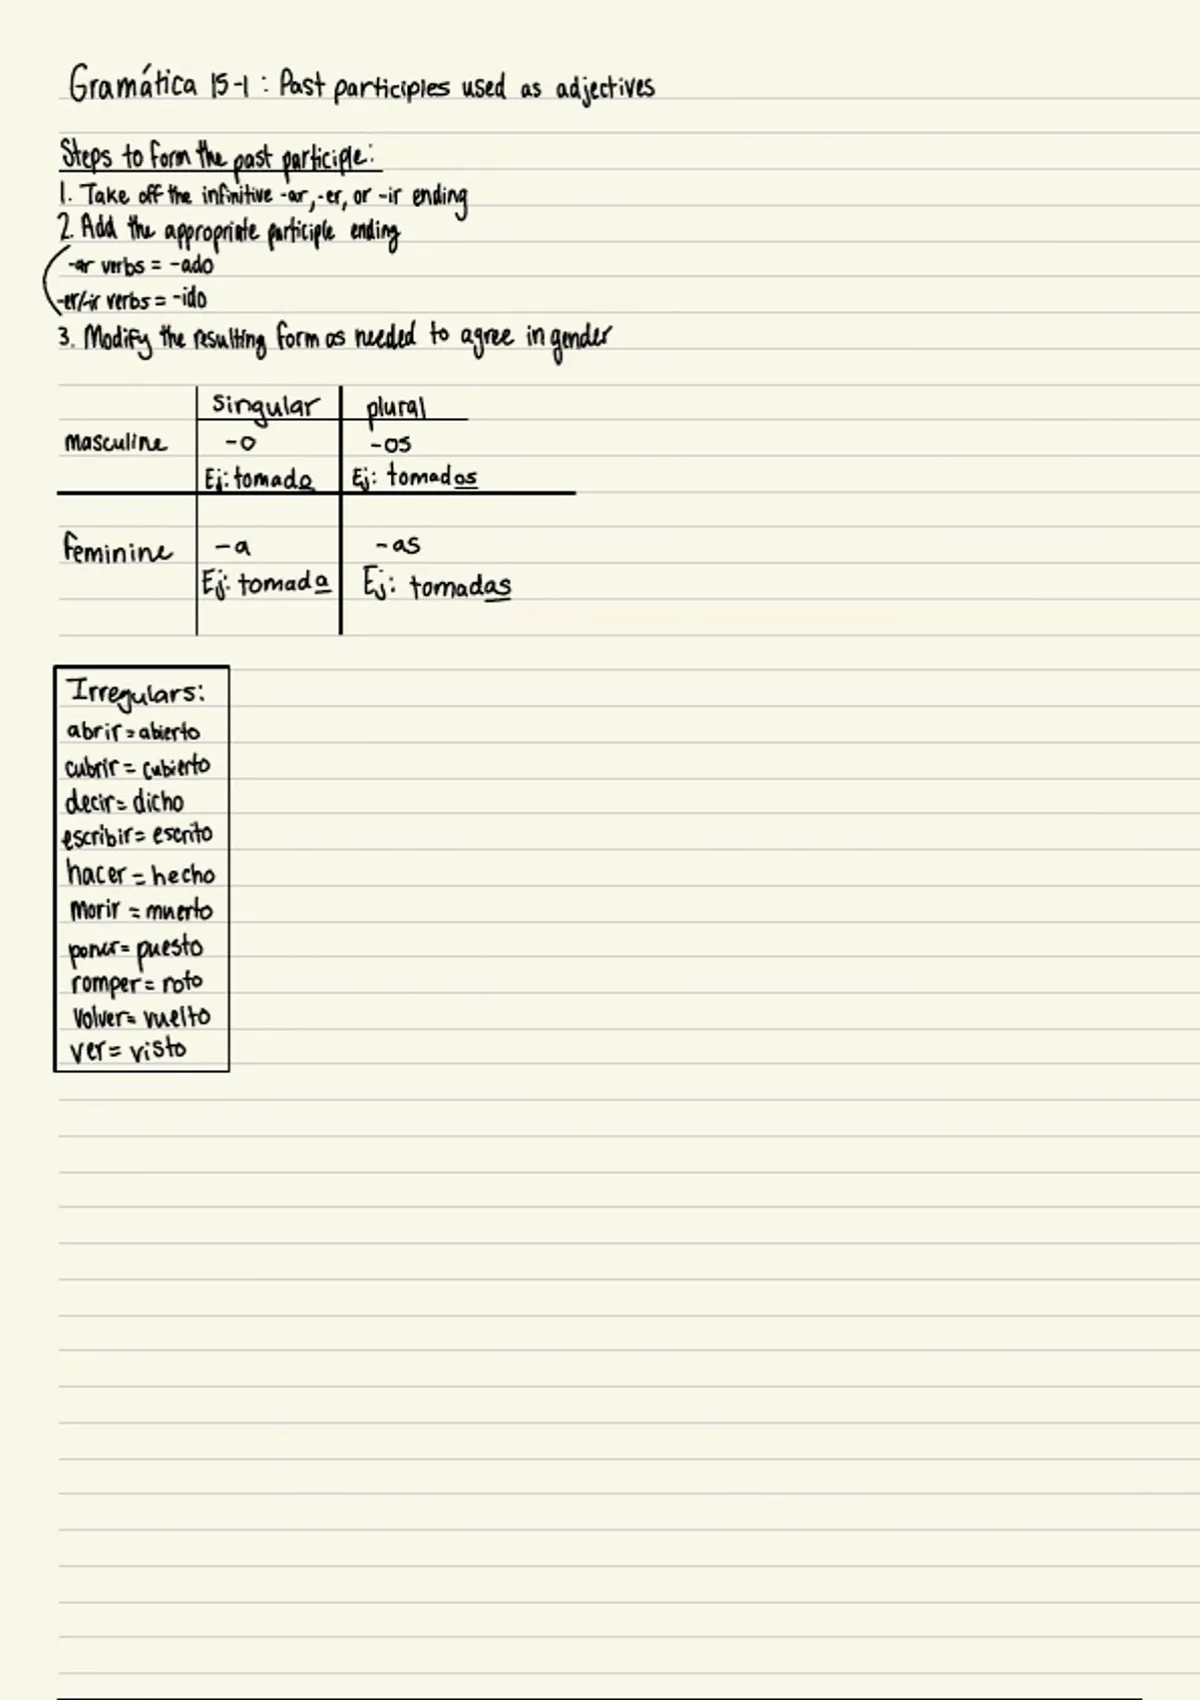 Gramática 15-1: Past participles used as adjectives
Steps to form the past participle:
1. Take off the infinitive -ar, -er, or -ir ending
2. Add the appropriate participle ending
-ar verbs = -ado
-er/-ir verbs = -ido
3. Modify the resulting form as needed to agree in gender
singular plural
masculine -o -os
Ej: tomado Ej: tomados
feminine -a -as
Ej: tomada Ej: tomadas
Irregulars:
abrir = abierto
cubrir = cubierto
decir = dicho
escribir = escrito
hacer = hecho
morir = muerto
poner = puesto
romper = roto
volver = vuelto
ver = visto